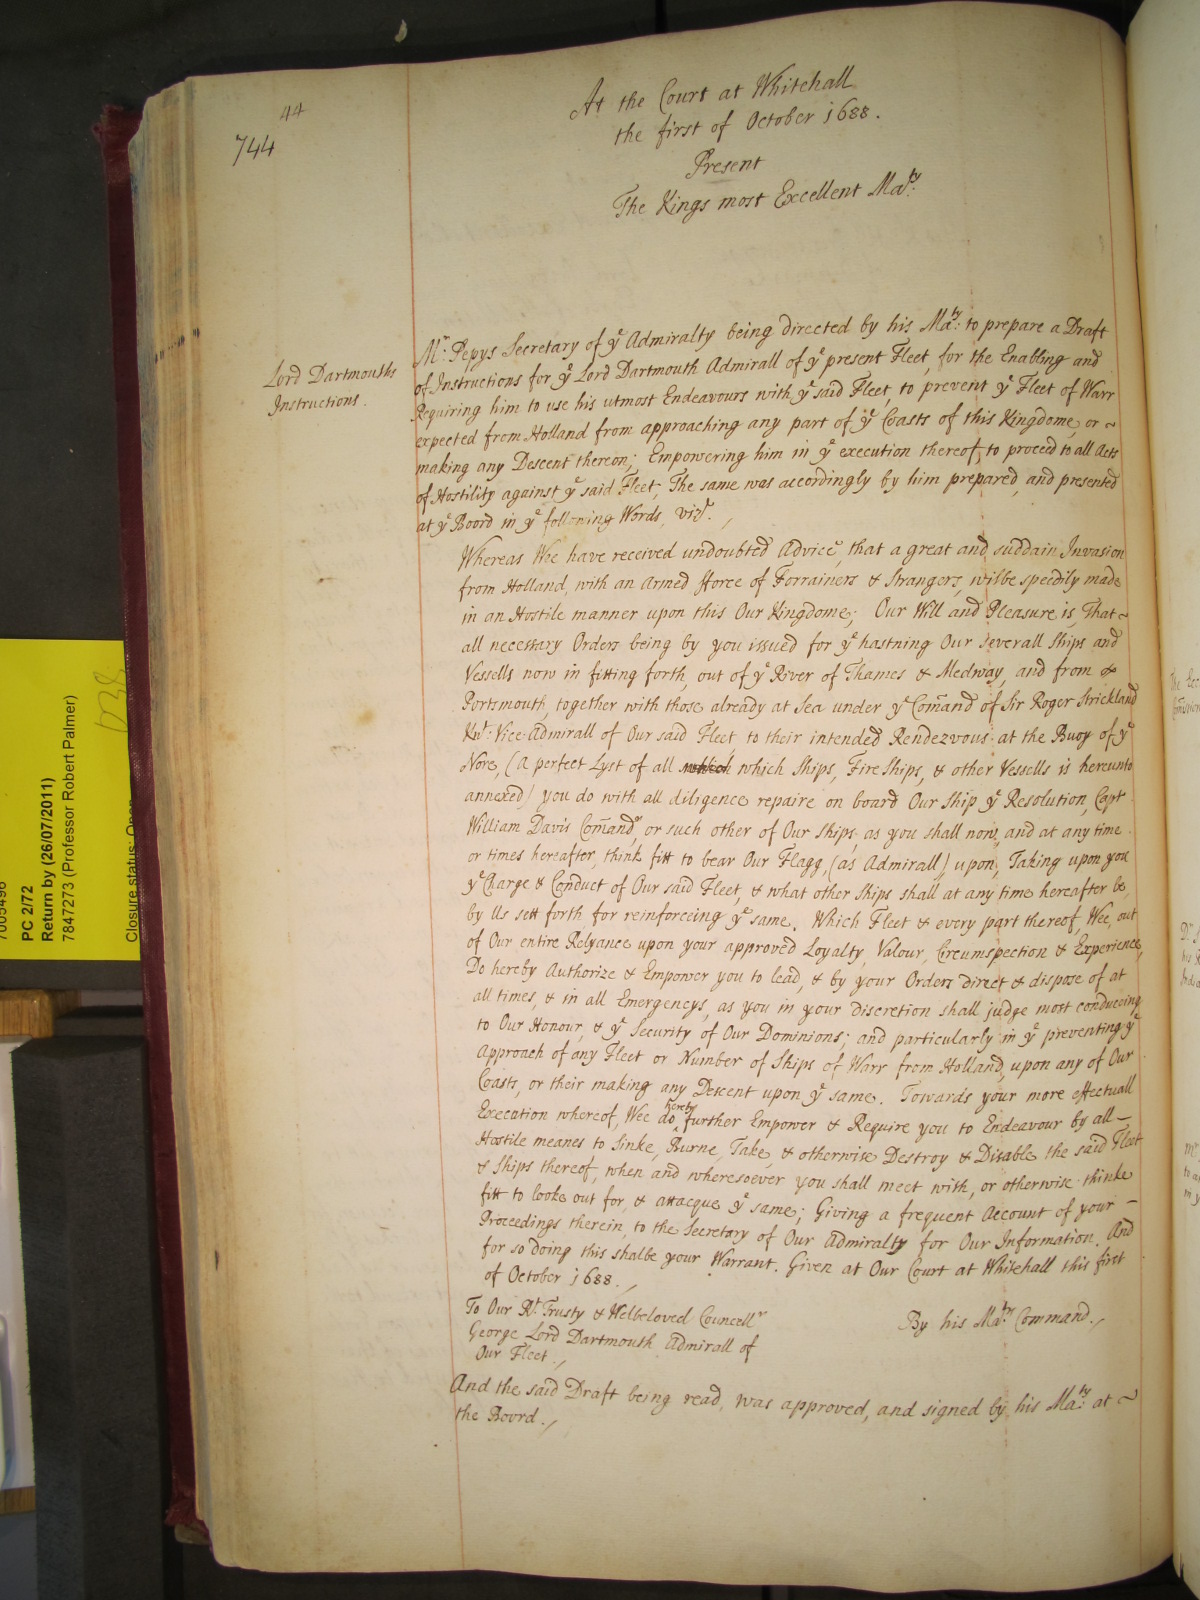 44
744
At the Court at Whitehall
the first of October 1688.
Present
The Kings most Excellent Ma:ty
Lord Dartmouths
Instructions.
Mr: Pepys Secretary of ye Admiralty being directed by his Ma:ty to prepare a Draft
of Instructions for ye Lord Dartmouth Admirall of ye present Fleet, for the Enabling and
Requiring him to use his utmost Endeavours with ye said Fleet, to prevent ye Fleet of Warr
expected from Holland from approaching any part of ye Coasts of this Kingdome, or ~
making any Descent thereon; Empowering him in ye execution thereof, to proceed to all Acts
of Hostility against ye said Fleet, The same was accordingly by him prepared, and presented
at ye Boord in ye following Words, vizt.
Whereas Wee have received undoubted Advice, that a great and suddain Invasion
from Holland, with an Armed fforce of Forrainers & Strangers, wilbe speedily made
in an Hostile manner upon this Our Kingdome; Our Will and Pleasure is, That ~
all necessary Orders being by you issued for ye hastning Our severall Ships and
Vessells now in fitting forth, out of ye River of Thames & Medway, and from
Portsmouth, together with those already at Sea under ye Com̃and of Sir Roger Strickland
Knt: Vice-Admirall of Our said Fleet, to their intended Rendezvous at the Buoy of ye
Nore, (A perfect Lyst of all which which Ships, Fire Ships, & other Vessells is hereunto
annexed) you do with all diligence repaire on board Our Ship ye Resolution, Capt
William Davis Com̃andr, or such other of Our Ships, as you shall now, and at any time
or times hereafter, think fitt to bear Our Flagg, (as Admirall) upon, Taking upon you
ye Charge & Conduct of Our said Fleet, & what other Ships shall at any time hereafter be,
by Us sett forth for reinforceing ye same. Which Fleet & every part thereof, Wee, out
of Our entire Relyance upon your approved Loyalty, Valour, Circumspection & Experience,
Do hereby Authorize & Empower you to lead, & by your Orders direct & dispose of at
all times, & in all Emergencys, as you in your discretion shall judge most conduceing
to Our Honour, & ye Security of Our Dominions; and particularly in ye preventing ye
Approach of any Fleet or Number of Ships of Warr from Holland, upon any of Our
Coasts, or their making any Descent upon ye same. Towards your more effectuall
Execution whereof, Wee do hereby further Empower & Require you to Endeavour by all —
Hostile meanes to Sinke, Burne, Take, & otherwise Destroy & Disable the said Fleet
& Ships thereof, when and wheresoever you shall meet with, or otherwise thinke
fitt to looke out for, & attacque ye same; Giving a frequent Account of your —
Proceedings therein, to the Secretary of Our Admiralty for Our Information. And
for so doing this shalbe your Warrant. Given at Our Court at Whitehall this first
of October 1688.
To Our Rt. Trusty & Welbeloved Councellr
George Lord Dartmouth Admirall of
Our Fleet.
By his Ma:ts Command.
And the said Draft being read, was approved, and signed by his Ma:ty at ~
the Boord.
PC 2/72
Return by (26/07/2011)
7847273 (Professor Robert Palmer)
Closure status: Open